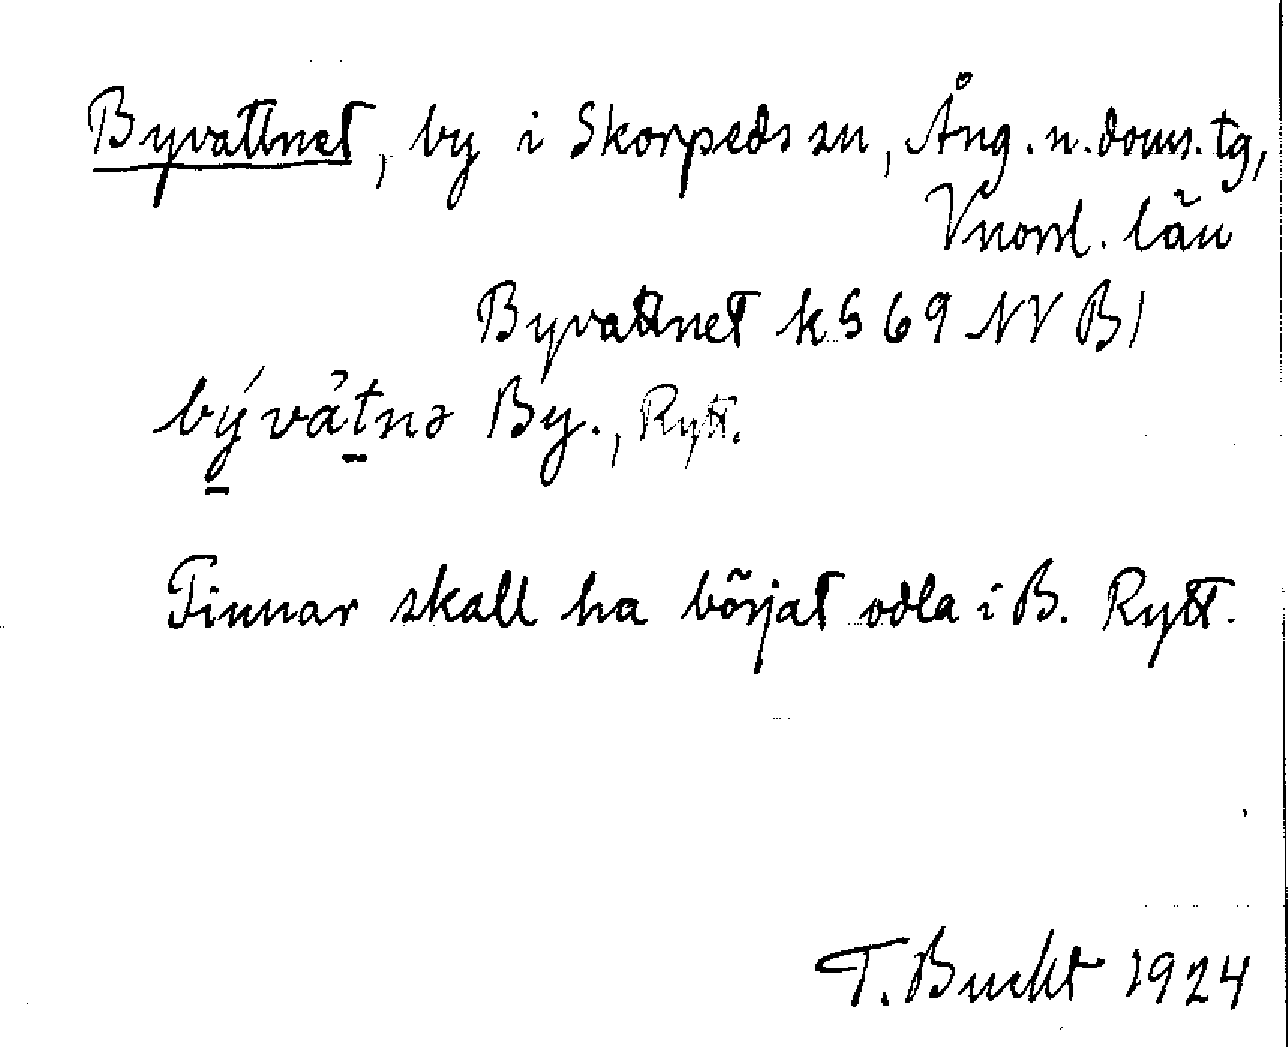 Byvattnet, by i Skorpeds sn, Ång. n. doms. tg,
Vnorrl. län
Byvattnet kS 69 NV B1
bývàtnə By., Rytt.
Finnar skall ha börjat odla i B. Rytt.
T. Bucht 1924